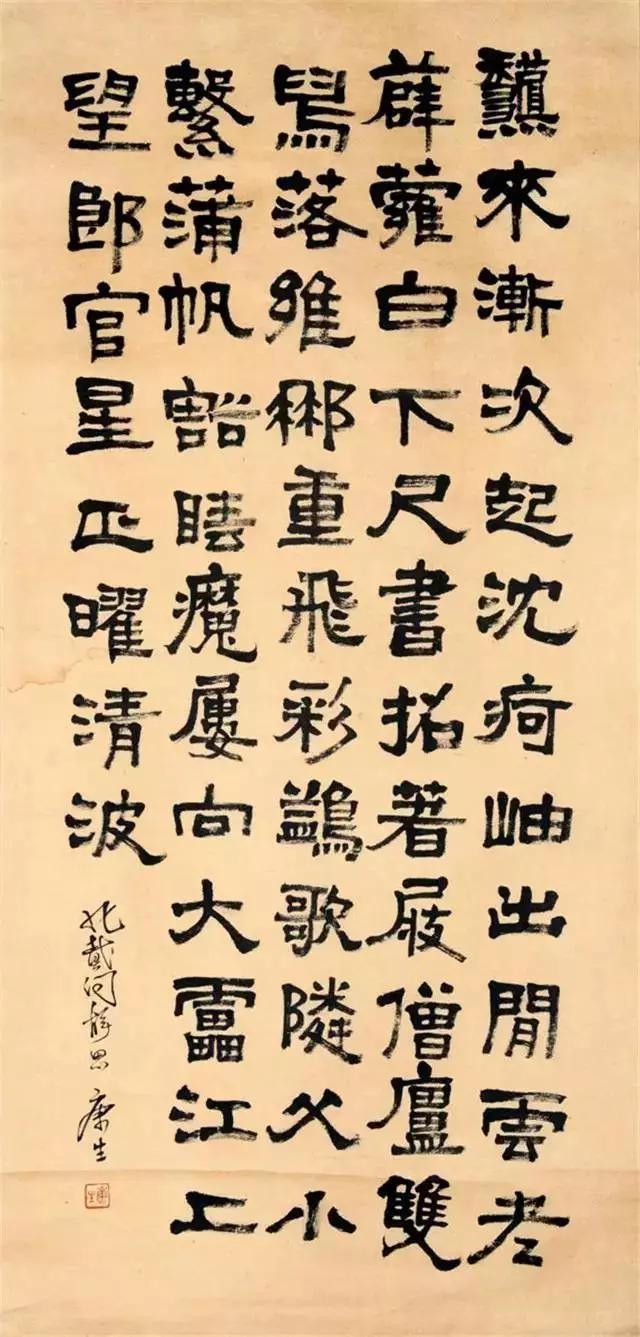 來漸次起沈疴岫出閒雲老
薜蘿白下尺書招著屐僧廬雙
舄落維那重飛彩鷁歌隣父小
繫蒲帆豁睡魔屢向大雷江上
望郎官星正曜清波
康生